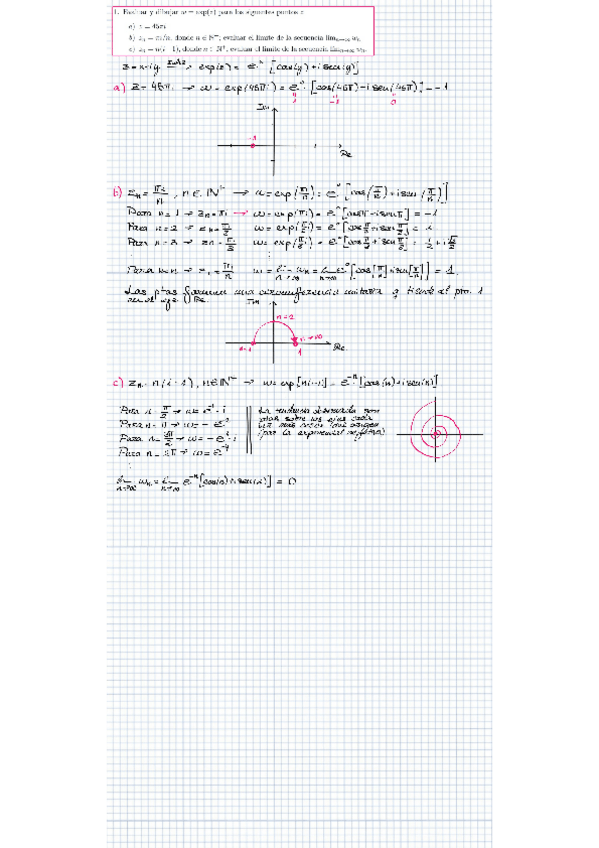 1. Evaluar y dibujar w = exp(z) para los siguientes puntos z
a) z = 45πi
b) zₙ = πi/n, donde n ∈ N⁺, evaluar el límite de la secuencia limₙ→∞ wₙ
c) zₙ = n(i−1), donde n ∈ N⁺, evaluar el límite de la secuencia limₙ→∞ wₙ
z = x+iy → exp(z) = eˣ [cos(y)+i sen(y)]
a) z = 45πi → w = exp(45πi) = e⁰ [cos(45π)+i sen(45π)] = -1
-1 0
Im
-1
Re
b) zₙ = πi/n, n ∈ N⁺ → w = exp(πi/n) = e⁰ [cos(π/n)+i sen(π/n)]
Para n = 1 → zₙ = πi → w = exp(πi) = e⁰ [cosπ+i senπ] = -1
Para n = 2 → zₙ = πi/2 w = exp(πi/2) = e⁰ [cos π/2+i sen π/2] = i
Para n = 3 → zₙ = πi/3 w = exp(πi/3) = e⁰ [cos π/3+i sen π/3] = 1/2+i√3/2
Para n=n → zₙ = πi/n w = lim n→∞ wₙ = lim n→∞ e⁰ [cos[π/n]+i sen[π/n]] = 1
Las ptos forman una circunferencia unitaria y tiende al pto. 1
en el eje Re.
Im
n=2
n→∞
n=1
1
Re
c) zₙ = n(i-1), n∈N⁺ → w = exp[n(i-1)] = e⁻ⁿ [cos(n)+i sen(n)]
Para n = π/2 → w = i
Para n = π → w = -
Para n = 3π/2 → w = - i
Para n = 2π → w =
La tendencia observada son
ptos sobre los ejes cada
vez más cerca del origen
(por la exponencial negativa)
lim n→∞ wₙ = lim n→∞ e⁻ⁿ [cos(n)+i sen(n)] = 0